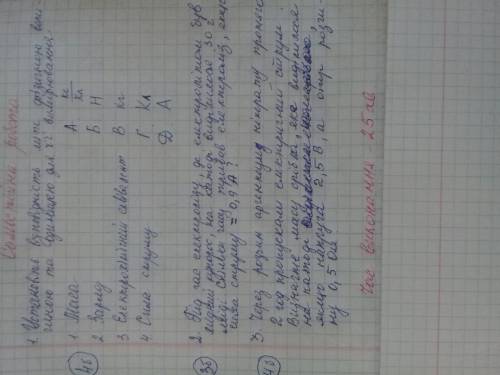 Самостійна робота
1. Установіть відповідність між фізичною вели-
чиною та одиницею для її вимірювання:
1 Маса А кг/Кл
2 Заряд Б Н
3 Електрохімічний еквівалент В кг
4 Сила струму Г Кл
Д А
4б
2. Під час електролізу, де електролітом був
мідний купорос, на катоді виділилося 30 г
міді. Скільки часу тривав електроліз, якщо
сила струму = 0,9 А?
3б
3. Через розчин аргентуму нітрату протягом
2 год пропускали електричний струм.
Визначте масу срібла, яке виділилося
на катоді
якщо напруга 2,5 В, а опір розчи-
ну 0,5 Ом.
4б
Час виконання - 25 хв